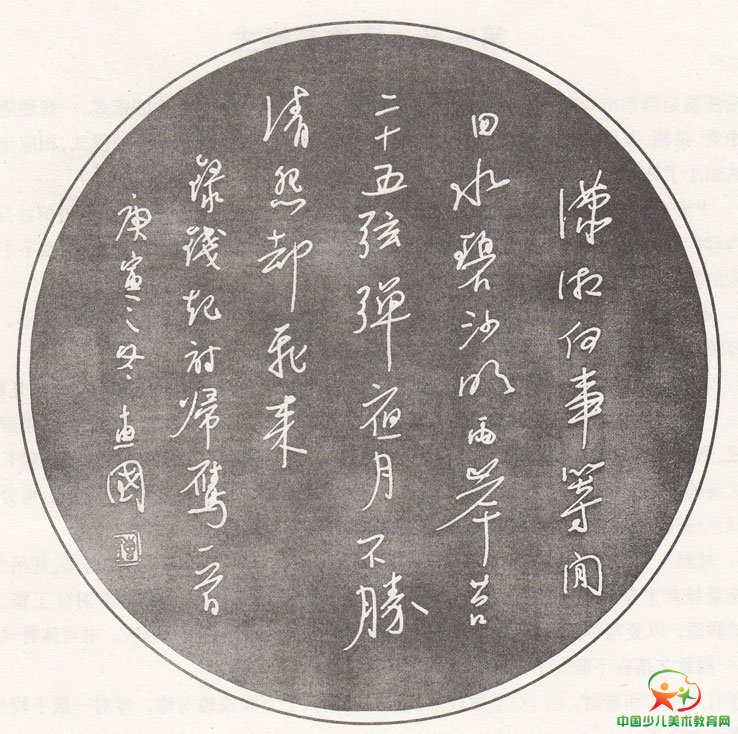 潇湘何事等闲
回水碧沙明两岸苔
二十五弦弹夜月不勝
清怨却飛来
録錢起詩歸鴈一首
庚寅之冬惠國
中国少儿美术教育网